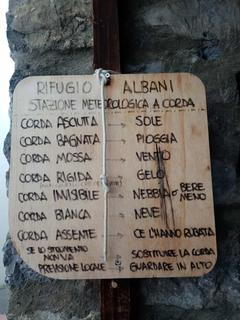 RIFUGIO ALBANI
STAZIONE METEOROLOGICA A CORDA
CORDA ASCIUTTA → SOLE
CORDA BAGNATA → PIOGGIA
CORDA MOSSA → VENTO
CORDA RIGIDA → GELO
CORDA INVISIBILE → NEBBIA O BERE MENO
CORDA BIANCA → NEVE
CORDA ASSENTE → CE L'HANNO RUBATA
SE LO STRUMENTO NON VA → SOSTITUIRE LA CORDA
PREVISIONE LOCALE → GUARDARE IN ALTO